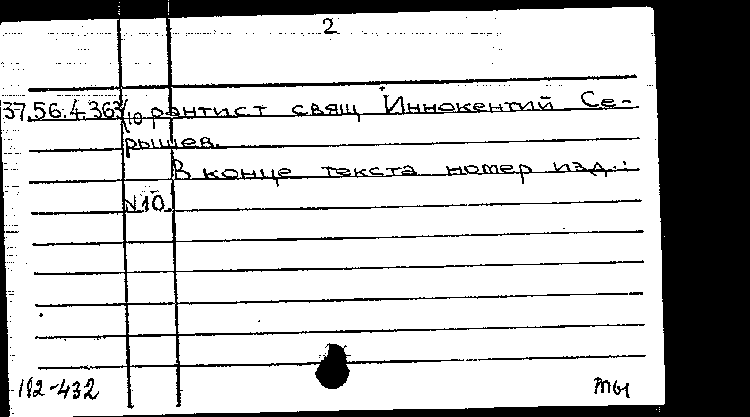 2
37.56.4.363/10 рантист свящ Иннокентий Се-
рышев.
В конце текста номер изд.:
N10.
182-432